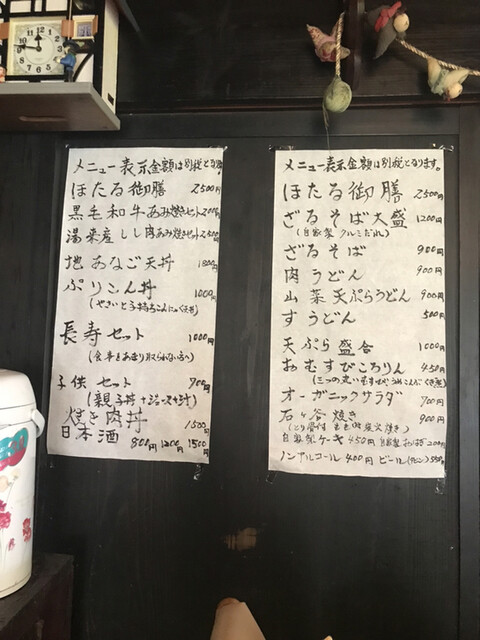 メニュー表示金額は別税となります。
ほたる御膳 2500円
黒毛和牛あみ焼きセット2000円
湯来産しし肉あみ焼きセット2500円
地あなご天丼 1800円
ぷりこん丼 1000円
長寿セット 1000円
(食事をあまり取られない方へ)
子供セット 700円
(親子丼+ジュース+汁)
焼き肉丼 1500円
日本酒 800円 1200円 1500円
メニュー表示金額は別税となります。
ほたる御膳 2500円
ざるそば大盛 1200円
(自家製クルミだれ)
ざるそば 900円
肉うどん 900円
山菜天ぷらうどん 900円
すうどん 500円
天ぷら盛合 1000円
おむすびころりん 450円
オーガニックサラダ 700円
石ヶ谷焼き 900円
自家製ケーキ 450円 自家製おはぎ 200円
ノンアルコール 400円 ビール(ビン) 550円